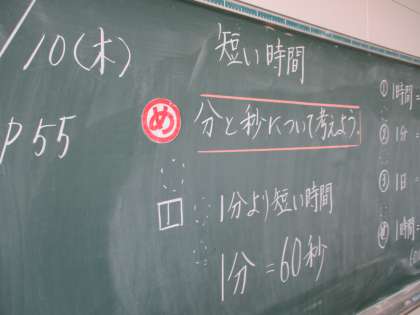 /10(木)
P55
短い時間
め 分と秒について考えよう。
1 1分より短い時間
1分=60秒
① 1時間=
② 1分=
③ 1日=
1時間=